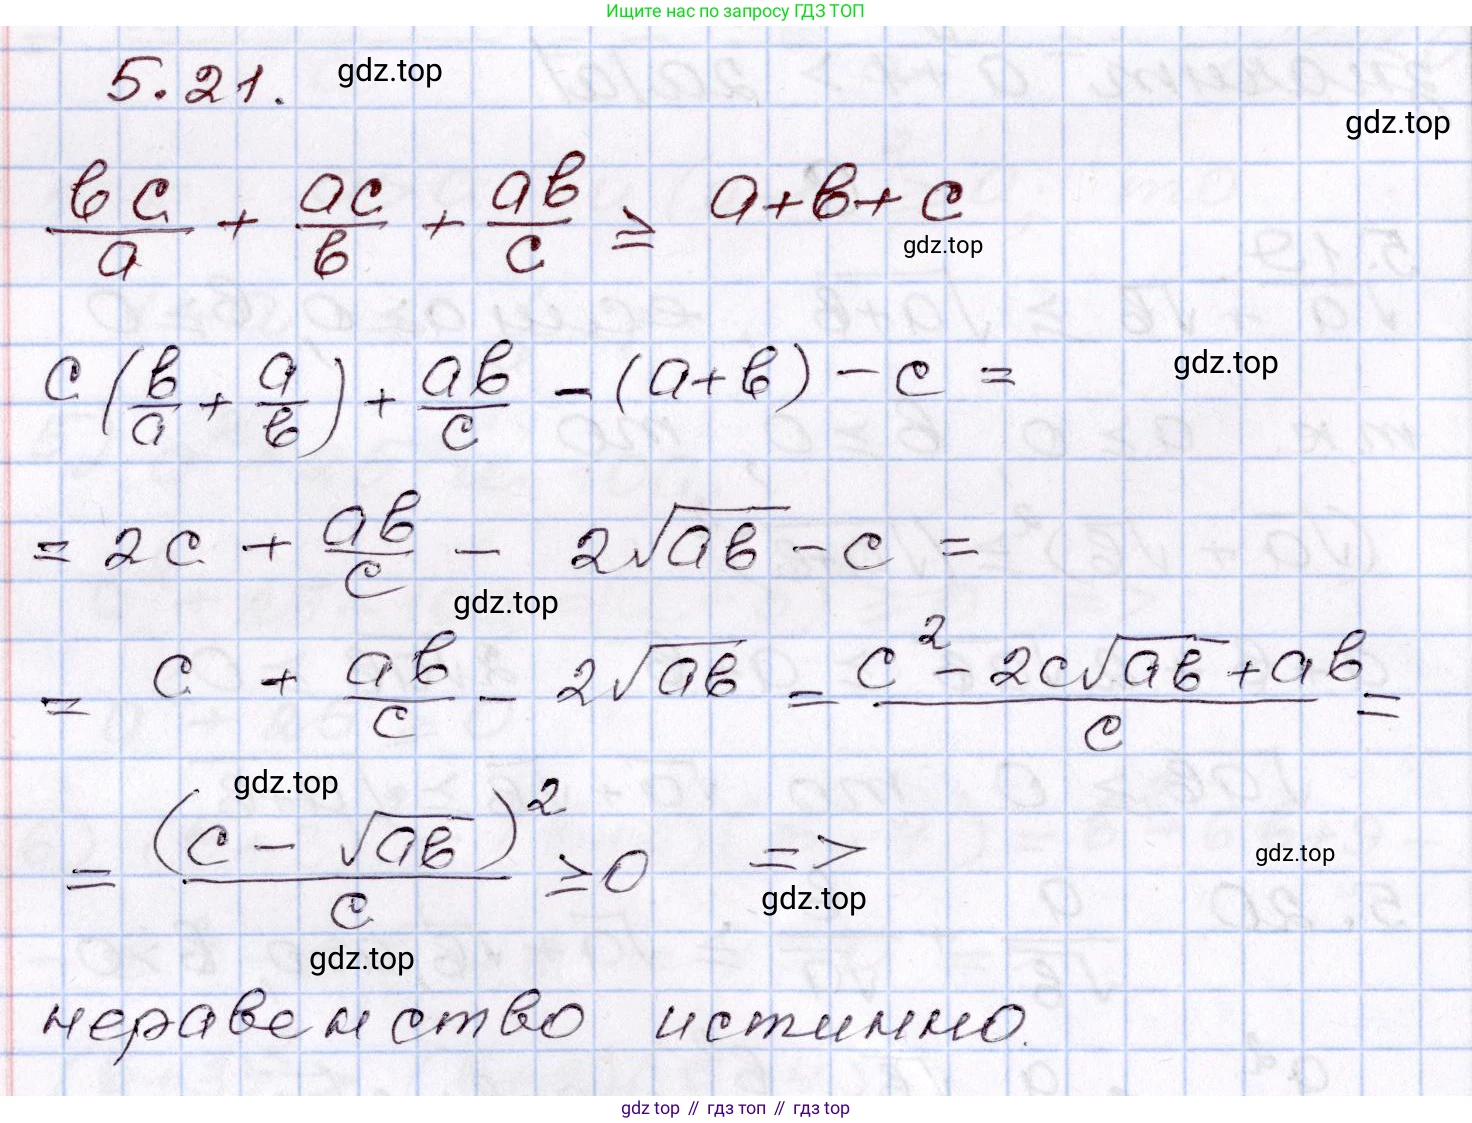 Ищите нас по запросу ГДЗ ТОП
5.21. gdz.top
gdz.top
вc/a + ac/в + aв/c ≥ a+в+c
gdz.top
c(в/a + a/в) + aв/c - (a+в) - c =
gdz.top
= 2c + aв/c - 2√aв - c =
gdz.top
= c + aв/c - 2√aв = (c² - 2c√aв + aв)/c =
gdz.top
= (c - √aв)²/c ≥ 0 =>
gdz.top
gdz.top
gdz.top
неравенство истинно.
gdz top // гдз топ // гдз top